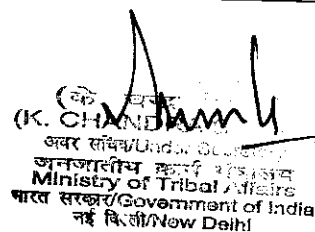 (के
(K. CHAND
अवर सचिव/Under
जनजातीय कार्य मंत्रालय
Ministry of Tribal Affairs
भारत सरकार/Government of India
नई दिल्ली/New Delhi